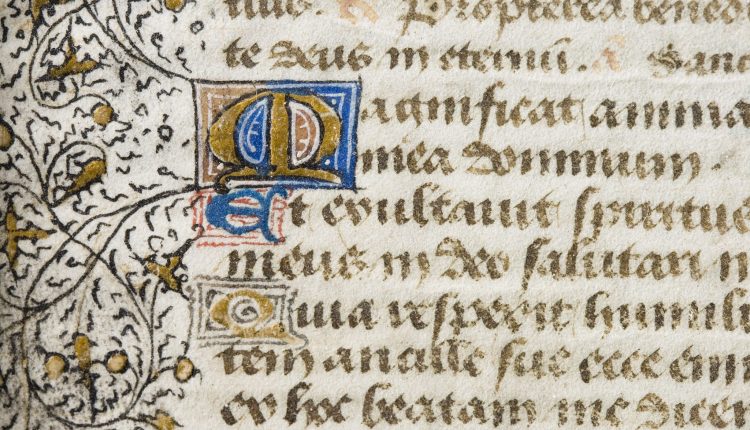 tuus. Propterea bened
te deus in eternū. a Sanc
Magnificat anima
mea dominum.
Et exultauit spiritus
meus in deo salutari m
Quia respexit humili
tem ancille sue ecce eni
ex hoc beatam me dicen